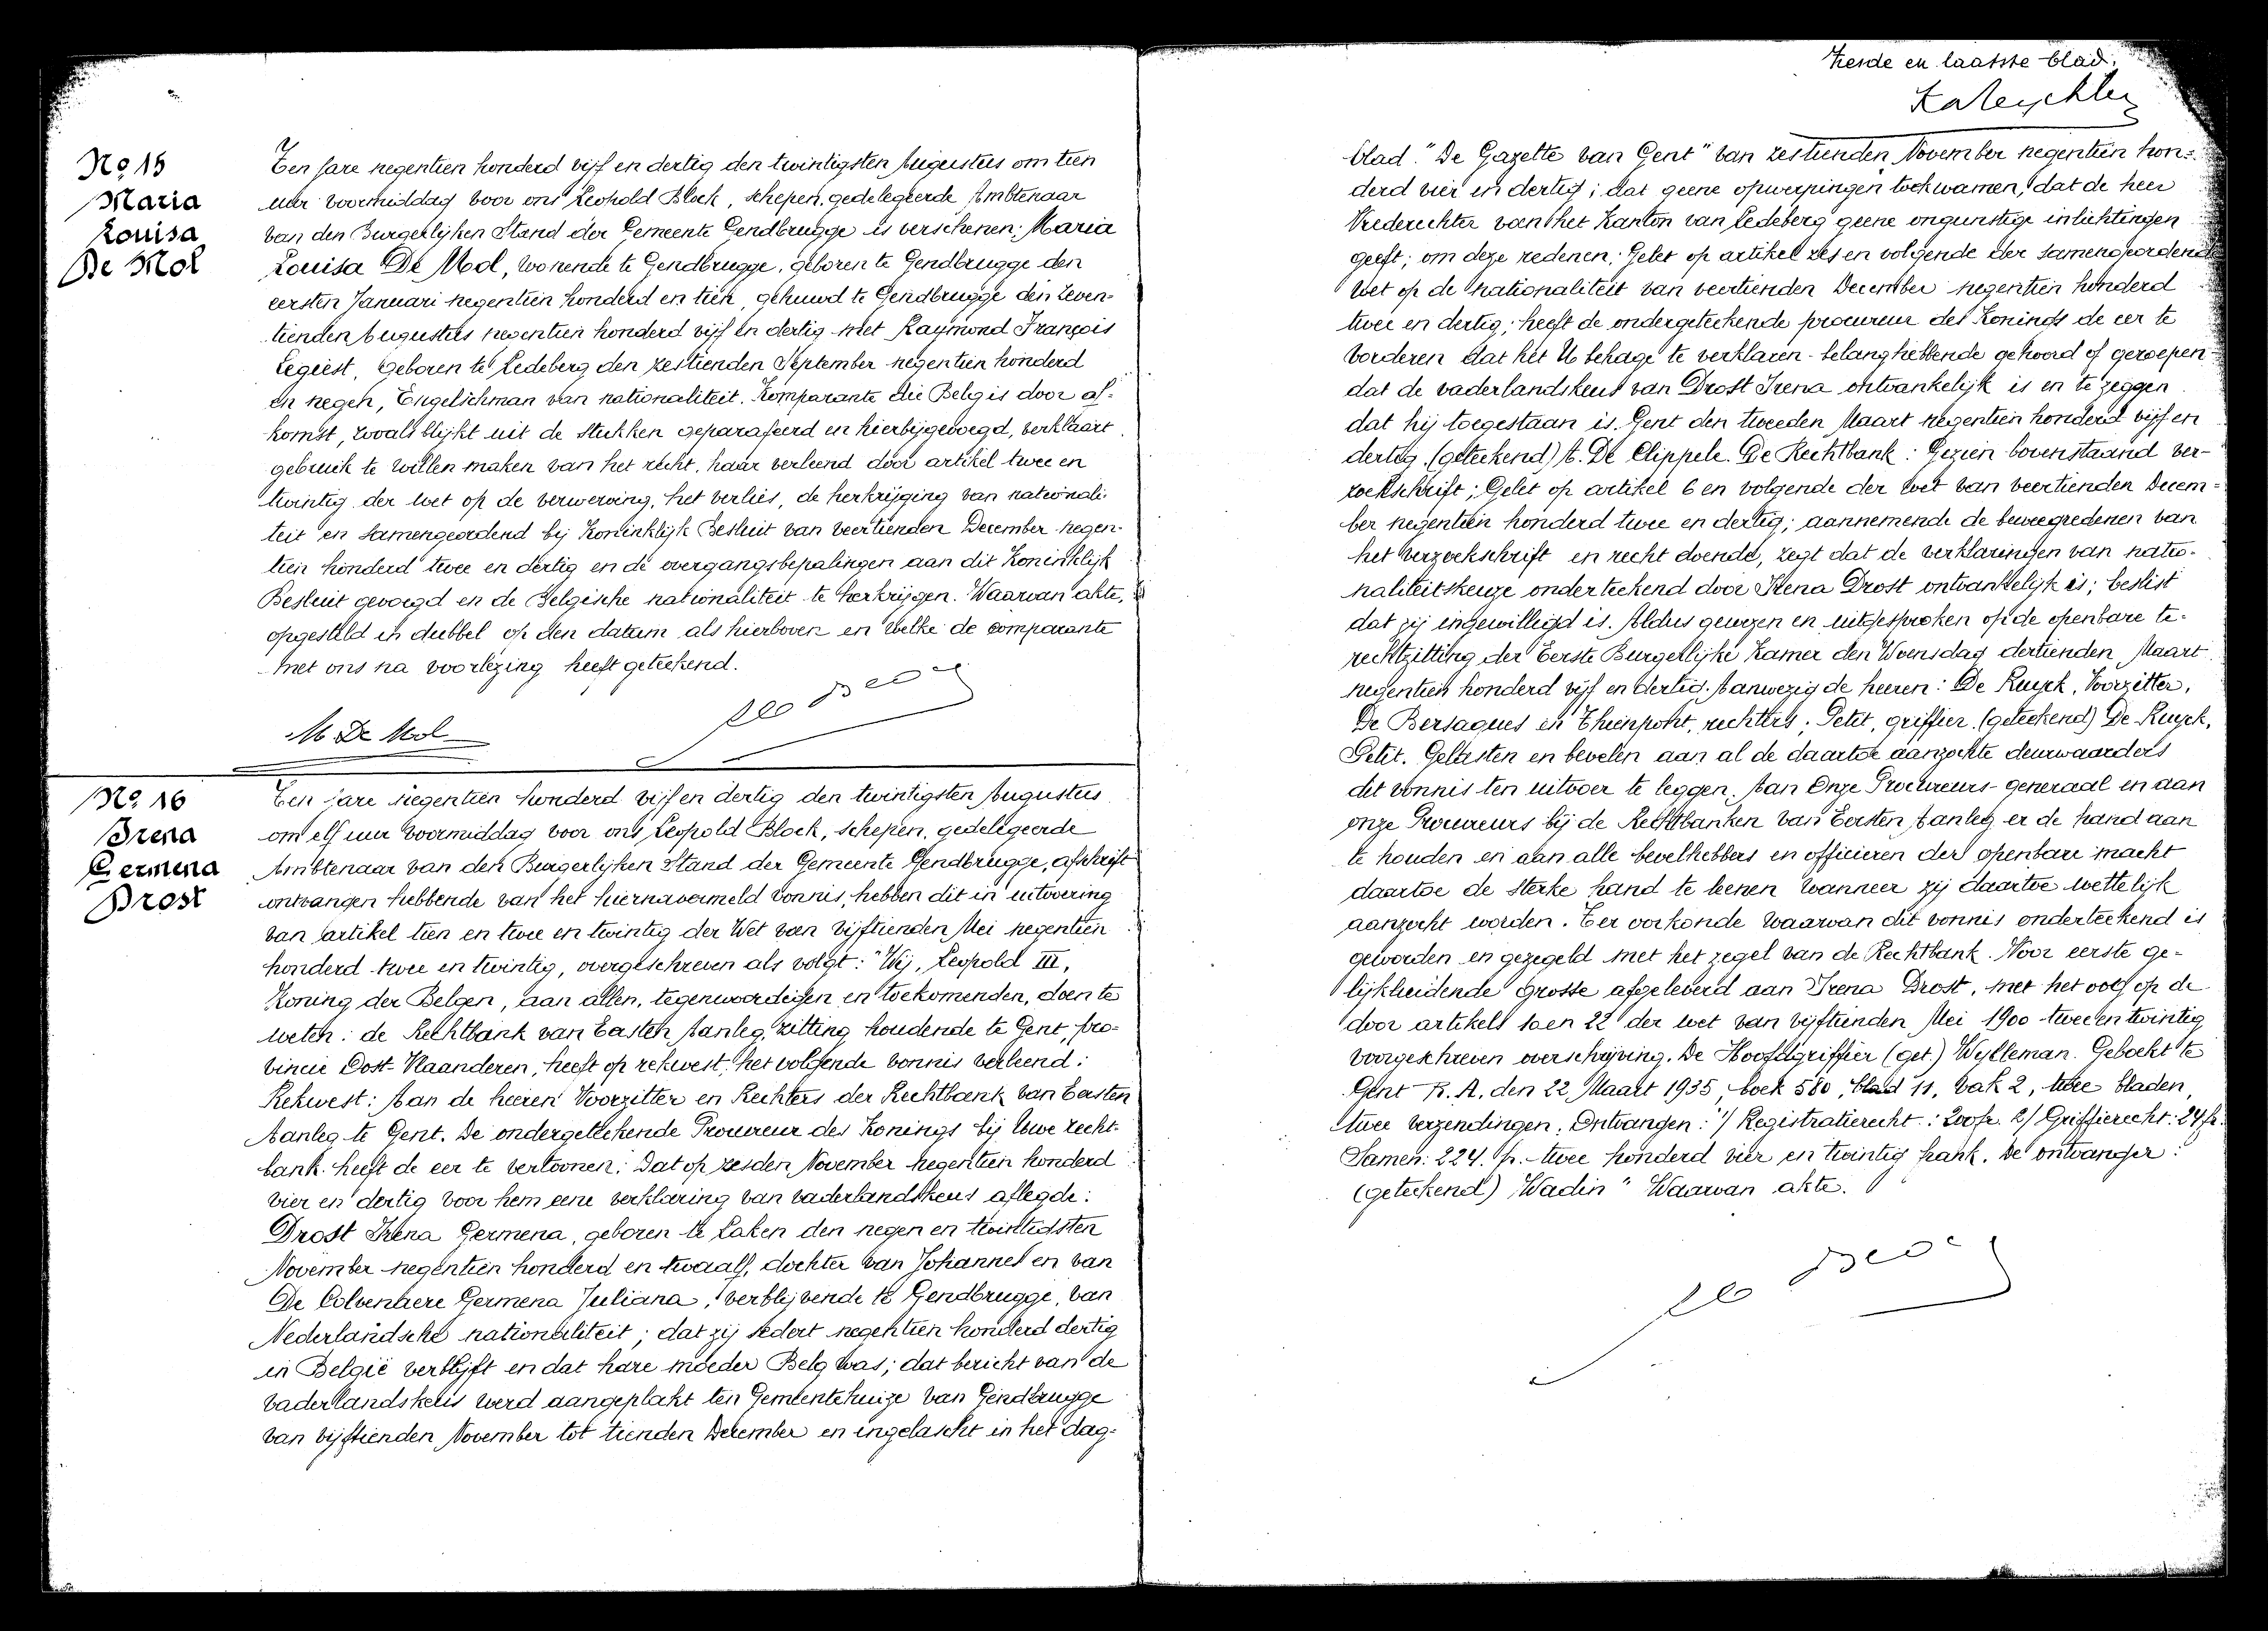 No 15
Maria
Louisa
De Mol
Ten jare negentien honderd vijf en dertig den twintigsten Augustus om tien
uur voormiddag voor ons Leopold Block, schepen, gedelegeerde Ambtenaar
van den Burgerlijken Stand der Gemeente Gendbrugge is verschenen: Maria
Louisa De Mol, wonende te Gendbrugge, geboren te Gendbrugge den
eersten Januari negentien honderd en tien, gehuwd te Gendbrugge den zeven-
tienden Augustus negentien honderd vijf en dertig met Raymond François
Legiest, geboren te Ledeberg den zestienden September negentien honderd
en negen, Engelschman van nationaliteit. Komparante die Belg is door af-
komst, zooals blijkt uit de stukken geparafeerd en hierbijgevoegd, verklaart
gebruik te willen maken van het recht, haar verleend door artikel twee en
twintig der wet op de verwerving, het verlies, de herkrijging van nationali-
teit en samengeordend bij Koninklijk Besluit van veertienden December negen-
tien honderd twee en dertig en de overgangsbepalingen aan dit Koninklijk
Besluit gevoegd en de Belgische nationaliteit te herkrijgen. Waarvan akte,
opgesteld in dubbel op den datum als hierboven en welke de comparante
met ons na voorlezing heeft geteekend.
M De Mol
No 16
Irena
Germena
Drost
Ten jare negentien honderd vijf en dertig den twintigsten Augustus
om elf uur voormiddag voor ons Leopold Block, schepen, gedelegeerde
Ambtenaar van den Burgerlijken Stand der Gemeente Gendbrugge, afschrift
ontvangen hebbende van het hiernavermeld vonnis, hebben dit in uitvoering
van artikel tien en twee en twintig der Wet van vijftienden Mei negentien
honderd twee en twintig, overgeschreven als volgt: "Wij, Leopold III,
Koning der Belgen, aan allen, tegenwoordigen en toekomenden, doen te
weten: de Rechtbank van Eersten Aanleg, zitting houdende te Gent, pro-
vincie Oost-Vlaanderen, heeft op rekwest, het volgende vonnis verleend:
Rekwest: Aan de heeren Voorzitter en Rechters der Rechtbank van Eersten
Aanleg te Gent. De ondergeteekende Procureur des Konings bij Uwe recht-
bank heeft de eer te vertoonen: Dat op zesden November negentien honderd
vier en dertig voor hem eene verklaring van vaderlandskeus aflegde:
Drost Irena Germena, geboren te Laken den negen en twintigsten
November negentien honderd en twaalf, dochter van Johannes en van
De Colvenaere Germena Juliana, verblijvende te Gendbrugge, van
Nederlandsche nationaliteit; dat zij sedert negentien honderd dertig
in België verblijft en dat hare moeder Belg was; dat bericht van de
vaderlandskeus werd aangeplakt ten Gemeentehuize van Gendbrugge
van vijftienden November tot tienden December en ingelascht in het dag-
Zesde en laatste blad.
blad "De Gazette van Gent" van zestienden November negentien hon-
derd vier en dertig; dat geene opwerpingen toekwamen, dat de heer
Vrederechter van het Kanton van Ledeberg geene ongunstige inlichtingen
geeft; om deze redenen; Gelet op artikel zes en volgende der samengeordende
wet op de nationaliteit van veertienden December negentien honderd
twee en dertig; heeft de ondergeteekende procureur des Konings de eer te
vorderen dat het U behage te verklaren - belanghebbende gehoord of geroepen -
dat de vaderlandskeus van Drost Irena ontvankelijk is en te zeggen
dat hij toegestaan is. Gent den tweeden Maart negentien honderd vijf en
dertig. (geteekend) A. De Clippele. De Rechtbank: Gezien bovenstaand ver-
zoekschrift; Gelet op artikel 6 en volgende der wet van veertienden Decem-
ber negentien honderd twee en dertig; aannemende de beweegredenen van
het verzoekschrift en recht doende, zegt dat de verklaringen van natio-
naliteitskeuze onderteekend door Irena Drost ontvankelijk is; beslist
dat zij ingewilligd is. Aldus gewezen en uitgesproken op de openbare te-
rechtzitting der Eerste Burgerlijke Kamer den Woensdag dertienden Maart
negentien honderd vijf en dertig. Aanwezig de heeren: De Ruyck, Voorzitter,
De Bersaques en Thienpont, rechters; Petit, griffier. (geteekend) De Ruyck,
Petit. Gelasten en bevelen aan al de daartoe aanzochte deurwaarders
dit vonnis ten uitvoer te leggen. Aan Onze Procureurs-generaal en aan
onze Procureurs bij de Rechtbanken van Eersten Aanleg er de hand aan
te houden en aan alle bevelhebbers en officieren der openbare macht
daartoe de sterke hand te leenen wanneer zij daartoe wettelijk
aanzocht worden. Ter oorkonde waarvan dit vonnis onderteekend is
geworden en gezegeld met het zegel van de Rechtbank. Voor eerste ge-
lijkluidende grosse afgeleverd aan Irena Drost, met het oog op de
door artikels 10 en 22 der wet van vijftienden Mei 1900 twee en twintig
voorgeschreven overschrijving. De Hoofdgriffier (get.) Wylleman. Geboekt te
Gent R. A. den 22 Maart 1935, boek 580, blad 11, vak 2, twee bladen,
twee verzendingen. Ontvangen: 1/ Registratierecht: 200fr. 2/ Griffierecht: 24fr.
Samen: 224. fr. twee honderd vier en twintig frank. De ontvanger:
(geteekend) Wadin" Waarvan akte.